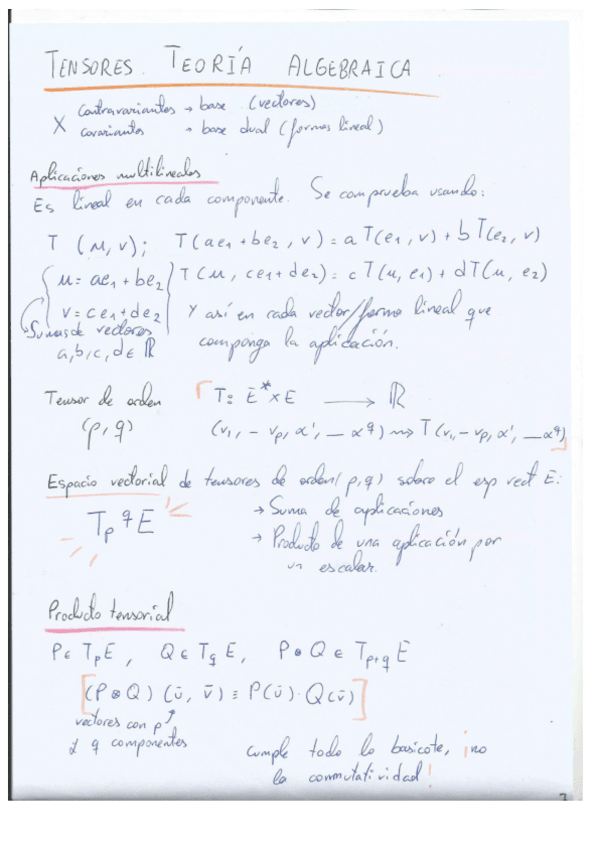 TENSORES. TEORÍA ALGEBRAICA
X contravariantes → base (vectores)
covariantes → base dual (formas lineal)
Aplicaciones multilineales
Es lineal en cada componente. Se comprueba usando:
T (u, v); T(ae₁ + be₂, v) = a T(e₁, v) + b T(e₂, v)
{ u = ae₁ + be₂ T(u, ce₁ + de₂) = c T(u, e₁) + d T(u, e₂)
v = ce₁ + de₂ Y así en cada vector/forma lineal que
Sumas de vectores componga la aplicación.
a, b, c, d ∈ ℝ
Tensor de orden T: E* x E ⟶ ℝ
(p, q) (v₁, – vₚ, α¹, — α^q) ⟿ T(v₁, – vₚ, α¹, — α^q)
Espacio vectorial de tensores de orden (p, q) sobre el esp vect E:
Tₚ^q E → Suma de aplicaciones
→ Producto de una aplicación por
un escalar.
Producto tensorial
P ∈ TₚE, Q ∈ T_q E, P ⊗ Q ∈ T_{p+q} E
[(P ⊗ Q) (ū, v̄) ≡ P(ū) · Q(v̄)]
vectores con p
y q componentes
Cumple todo lo basicote, ¡no
la conmutatividad!